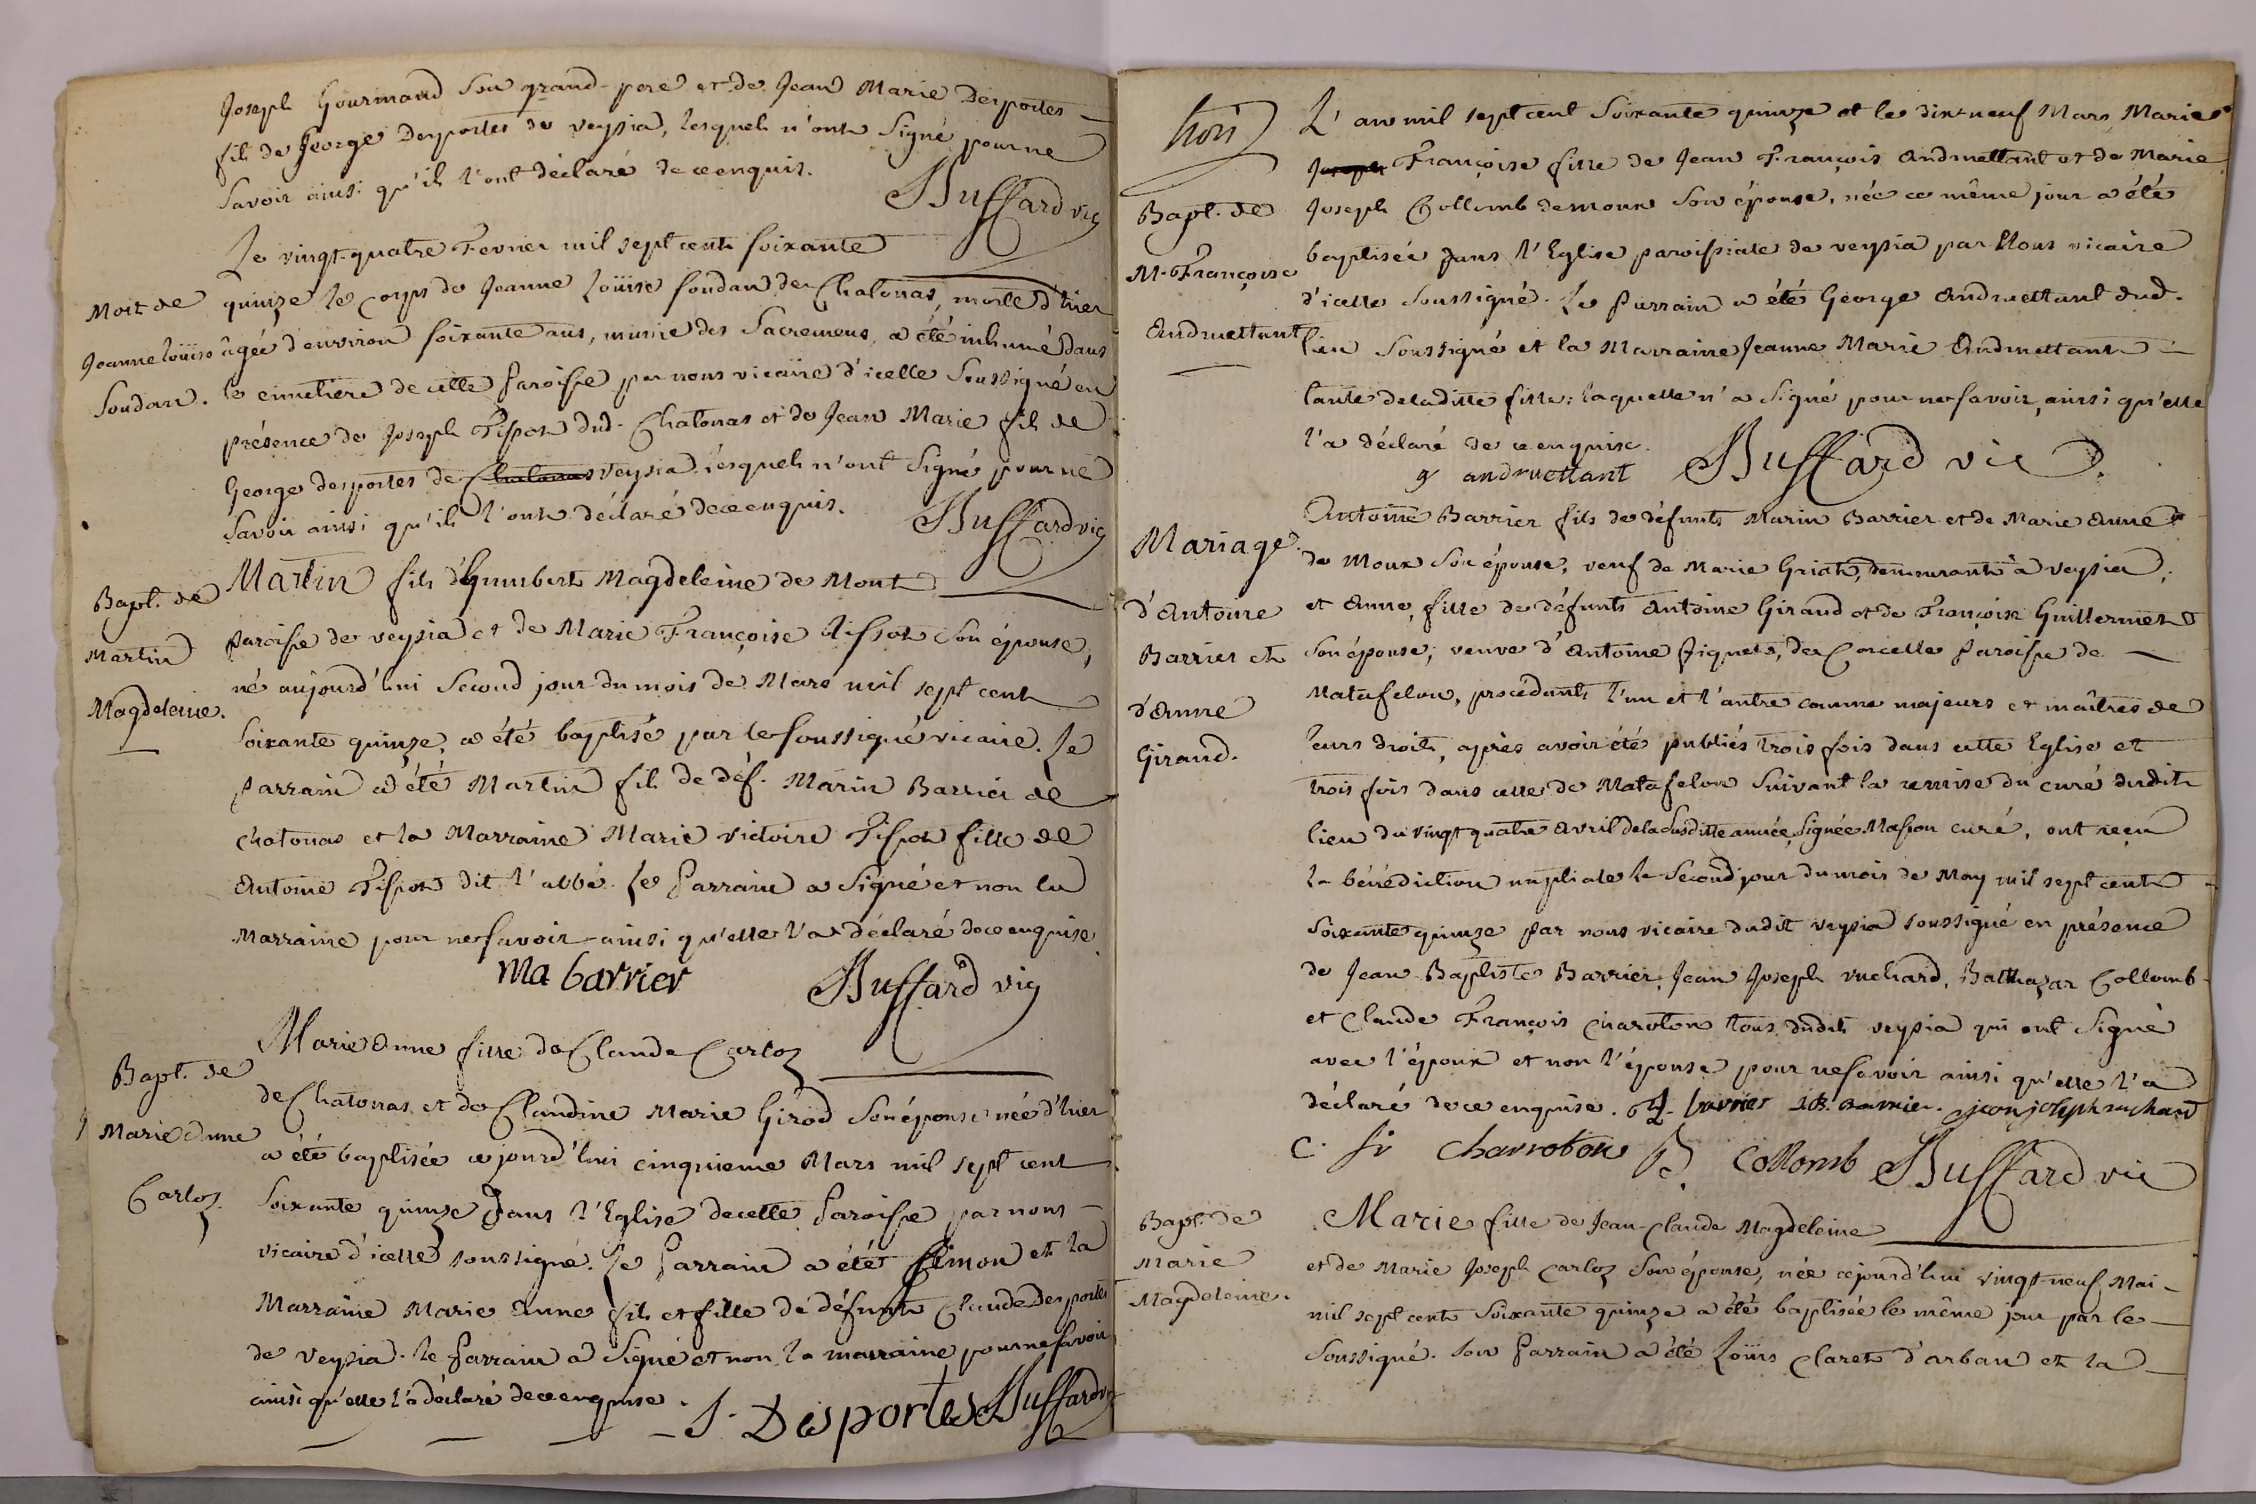 Joseph Gourmand son grand-pere et de Jean Marie Desportes
fils de George Desportes de veysia, lesquels n'ont signé pour ne
savoir ainsi qu'ils l'ont déclaré de ce enquis.
Buffard vic
Mort de
Jeanne Loüise
Soudan.
Le vingt-quatre Fevrier mil sept cent soixante
quinze le corps de Jeanne Loüise soudan de Chatonas, morte d'hier
âgée d'environ soixante ans, munie des sacremens, a été inhumé dans
le cimetiere de cette Paroisse par nous vicaire d'icelle soussigné en
présence de Joseph Tissot dud. Chatonas et de Jean Marie fils de
George desportes de Chatonas veysia lesquels n'ont signé pour ne
savoir ainsi qu'ils l'ont déclaré de ce enquis.
Buffard vic
Bapt. de
Martin
Magdeleine.
Martin fils d'humbert Magdeleine de Mont
Paroisse de veysia et de Marie Françoise tissot son épouse,
né aujourd'hui second jour du mois de Mars mil sept cent
soixante quinze, a été baptisé par le soussigné vicaire. Le
Parrain a été Martin fils de déf. Marin Barrier de
chatonas et la Marraine Marie victoire Tissot fille de
Antoine Tissot dit l'abbé. Le Parrain a signé et non la
Marraine pour ne savoir ainsi qu'elle l'a déclaré de ce enquise.
Ma barrier Buffard vic
Bapt. de
Marie Anne
Carloz
Marie Anne fille de Claude Carloz
de Chatonas et de Claudine Marie Girod son épouse née d'hier
a été baptisée ce jourd'hui cinquieme Mars mil sept cent
soixante quinze dans l'Eglise de cette Paroisse par nous
vicaire d'icelle soussigné. Le Parrain a été Simon et la
Marraine Marie Anne fils et fille de défunt Claude Desportes
de veysia. le Parrain a signé et non la marraine pour ne savoir
ainsi qu'elle l'a déclaré de ce enquise.
S. Desportes Buffard vic
trois
Bapt. de
M. Françoise
Andruettant
L'an mil sept cent soixante quinze et le dix-neuf Mars, Marie
Joseph Françoise fille de Jean François Andruettant et de Marie
Joseph Collomb demoux son épouse, née ce même jour a été
baptisée dans l'Eglise paroissiale de veysia par Nous vicaire
d'icelle soussigné. Le Parrain a été George Andruettant dud.
lieu soussigné et la Marraine Jeanne Marie Andruettant
tante de laditte fille: laquelle n'a signé pour ne savoir, ainsi qu'elle
l'a déclaré de ce enquise.
g andruettant Buffard vic
Mariage
d'Antoine
Barrier et
d'Anne
Giraud.
Antoine Barrier fils de défunts Marin Barrier et de Marie Anne
de Moux son épouse, veuf de Marie Griat, demeurant à veysia;
et Anne, fille de défunts Antoine Giraud et de Françoise Guillermet
son épouse, veuve d'Antoine Piquet, de Corcelle Paroisse de
Matafelon, procédants l'un et l'autre comme majeurs et maîtres de
leurs droits, après avoir été publiés trois fois dans cette Eglise et
trois fois dans celle de Matafelon suivant la remise du curé dudit
lieu du vingt quatre Avril de la susditte année, signée Masson curé, ont reçu
la bénédiction nuptiale le second jour du mois de May mil sept cent
soixante quinze par nous vicaire dudit veysia soussigné en présence
de Jean-Baptiste Barrier, Jean Joseph ruchard, Balthazar Collomb
et Claude François Charoton tous dudit veysia qui ont signé
avec l'époux et non l'épouse pour ne savoir ainsi qu'elle l'a
déclaré de ce enquise. barrier J.B. barrier. jean joseph ruchard
c. fr charroton B. Collomb Buffard vic
Bapt. de
Marie
Magdeleine.
Marie fille de Jean-Claude Magdeleine
et de Marie Joseph Carloz son épouse, née cejourd'hui vingt-neuf Mai
mil sept cent soixante quinze a été baptisée le même jour par le
soussigné. son Parrain a été Loüis Claret d'arban et la